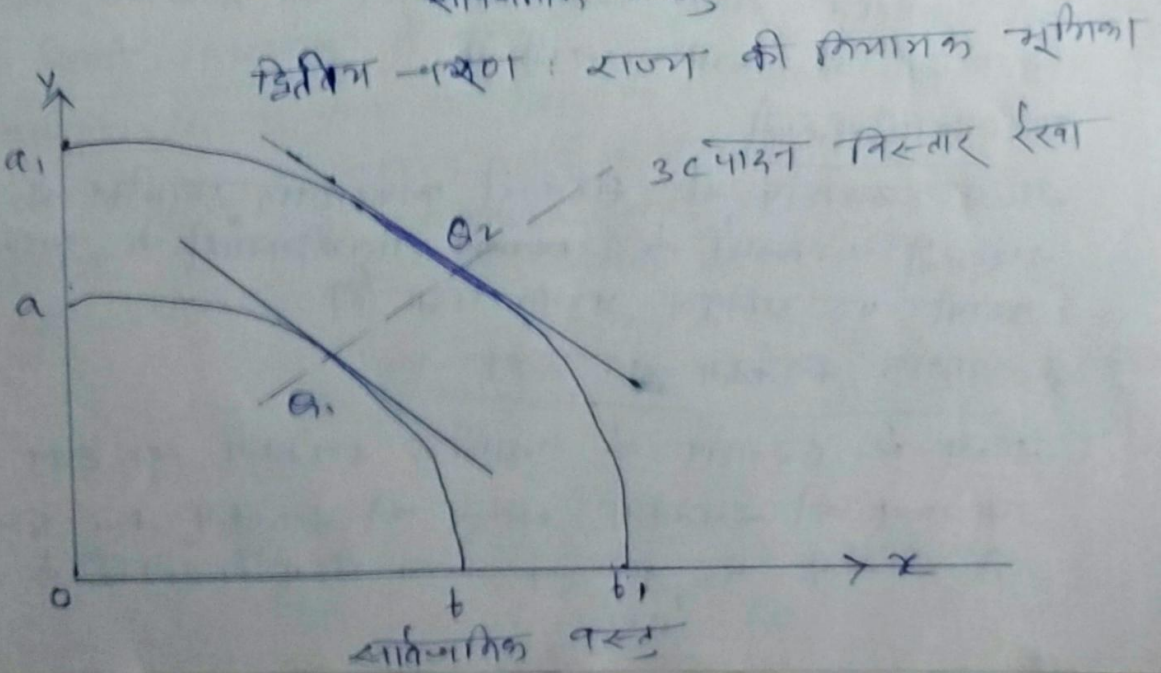 द्वितिय चरण : राज्य की नियामक भूमिका
y
उत्पादन विस्तार रेखा
a₁
Q₂
a
Q₁
0
b
b₁
x
सार्वजनिक वस्तु